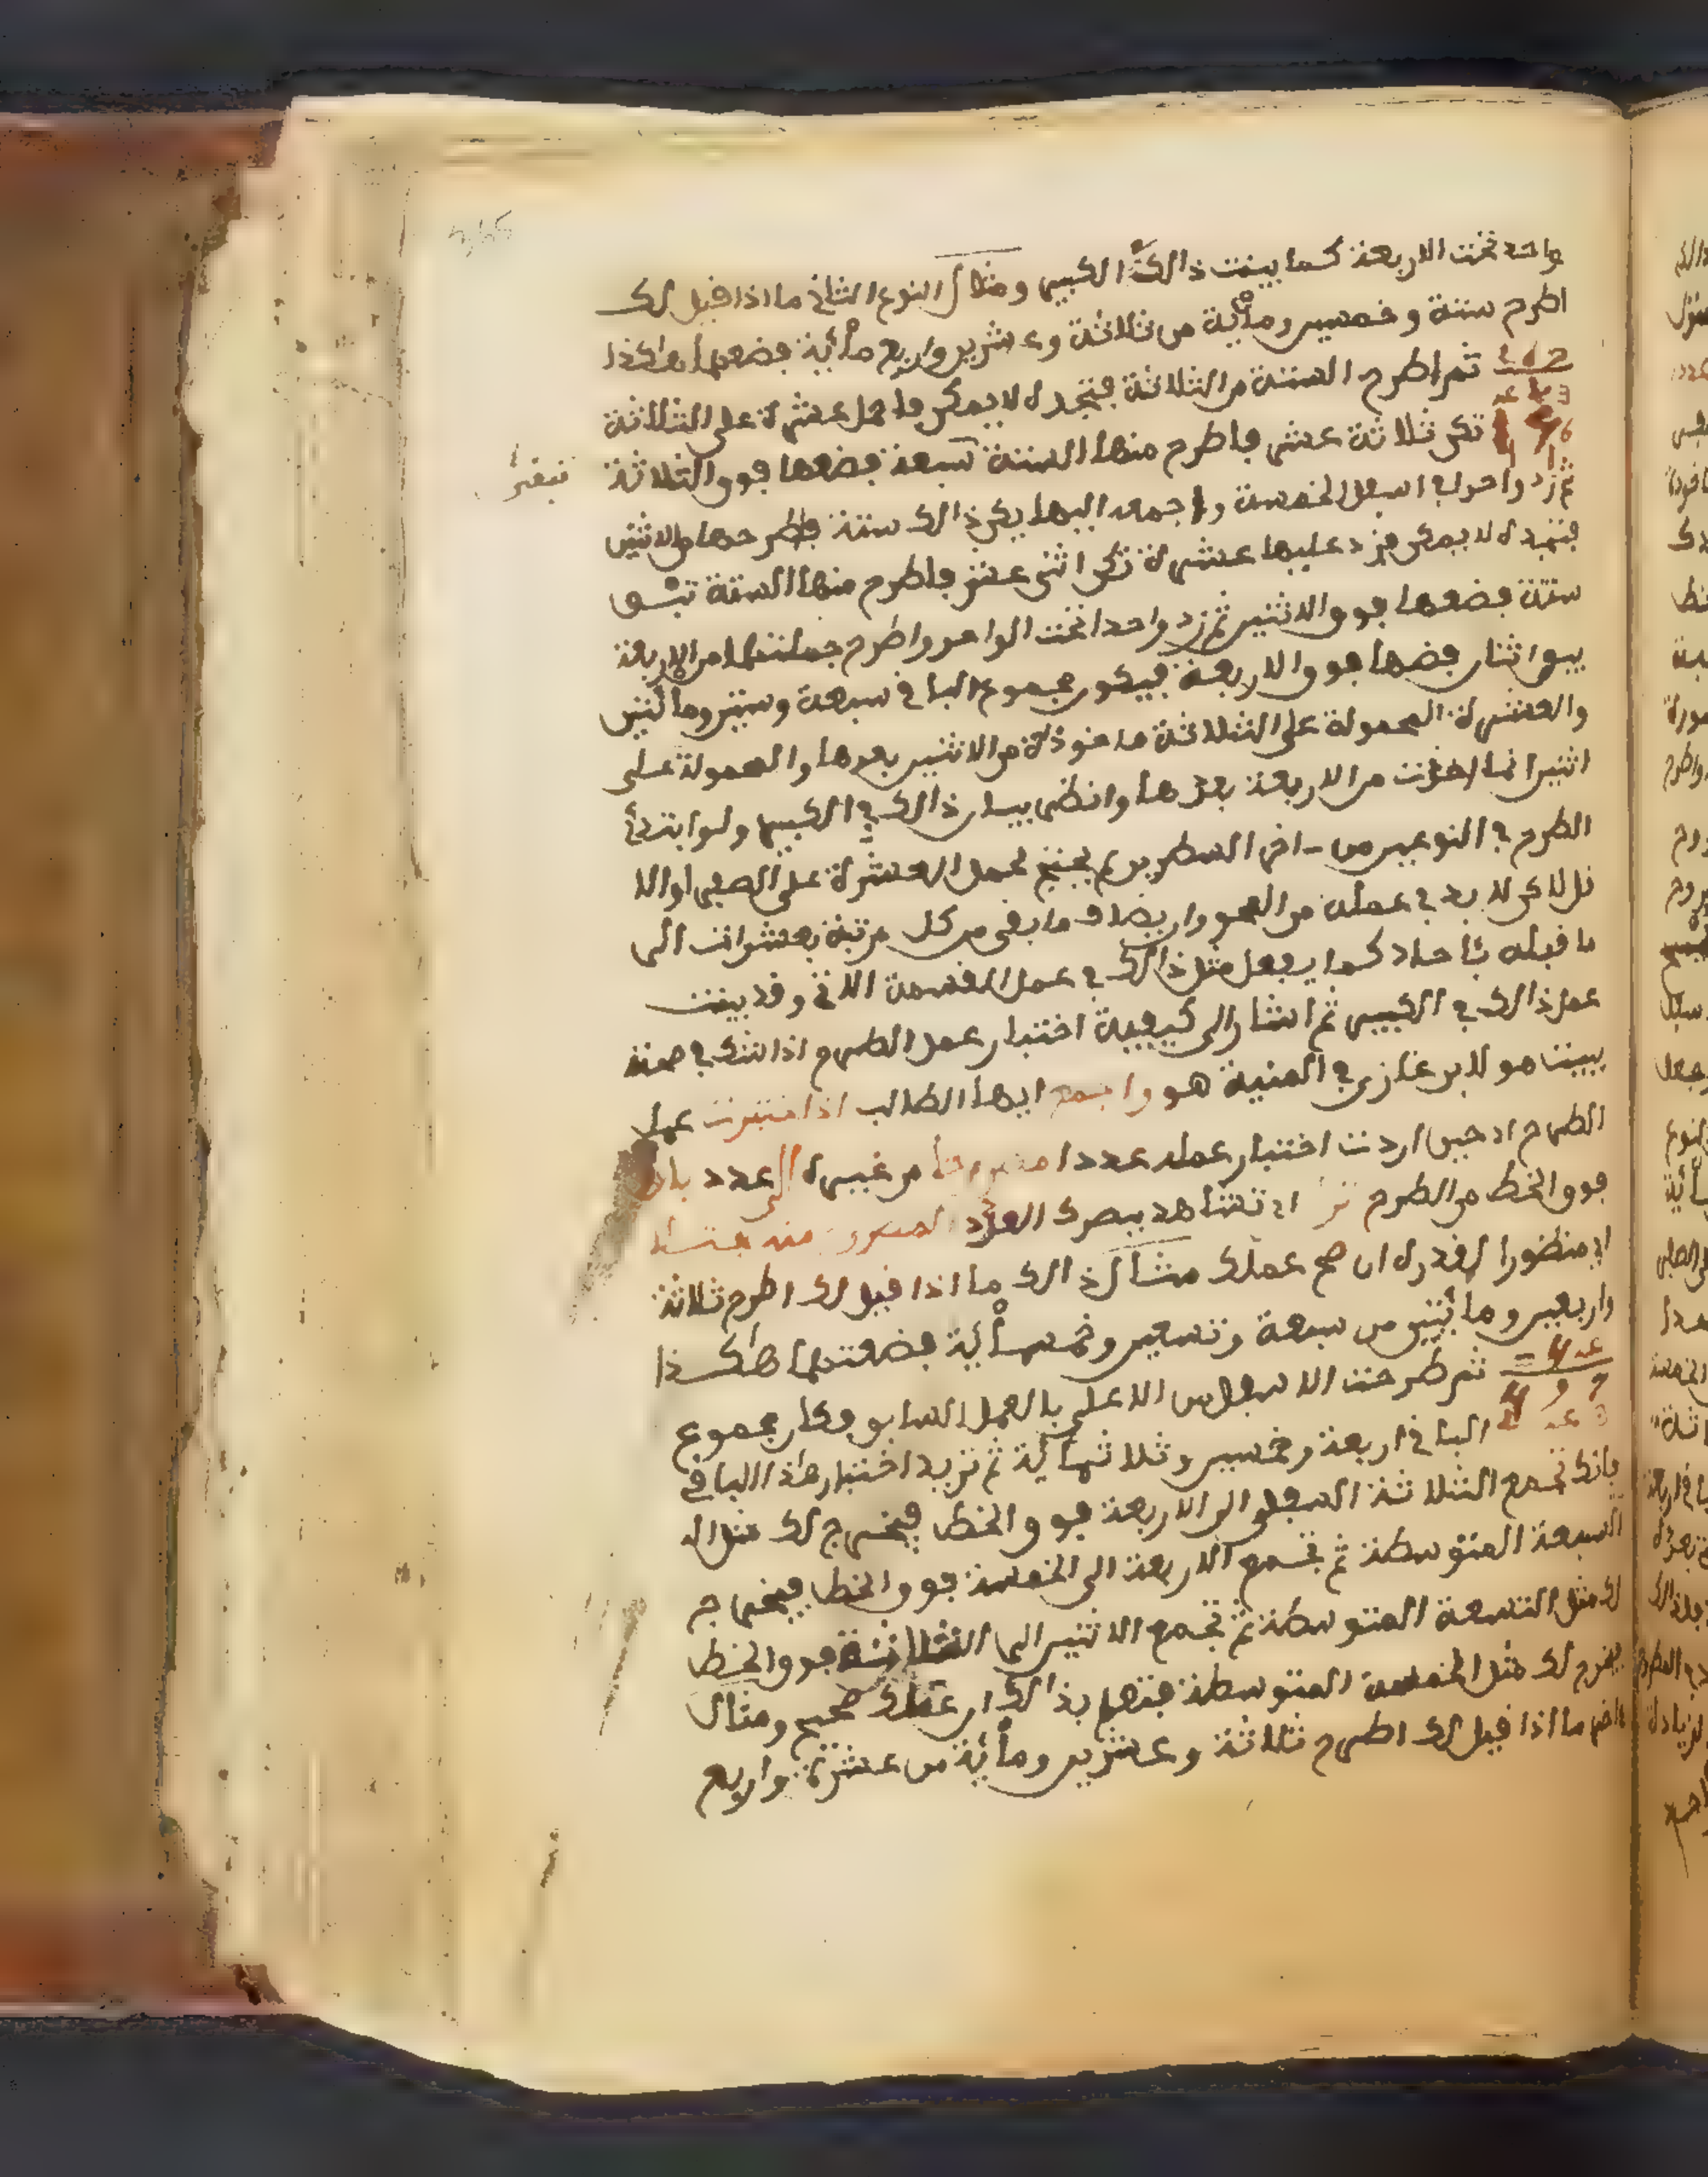 واحد تحت الاربعة كما بينت ذالك الكبير ومثال النوع الثاني ما اذا قيل لك
اطرح ستة وخمسين ومأية من ثلاثة وعشرين واربع مأية فضعهما هاكذا
ثم اطرح الستة من الثلاثة فتجده لا يمكن فاحمل عشرة على الثلاثة
تكن ثلاثة عشر فاطرح منها الستة سبعة فضعها فوق الثلاثة
ثم زد واحدا في اسفل الخمسة واجمعه اليها يكن ذالك ستة فاطرحها من الاثنين
فتجده لا يمكن فزد عليها عشرة تكن اثنى عشر فاطرح منها الستة تبقى
ستة فضعها فوق الاثنين ثم زد واحدا تحت الواحد واطرح جملتهما من الاربعة
يبقى اثنان فضعها فوق الاربعة فيكون مجموع الباقي سبعة وستين ومائتين
والعشرة المحمولة على الثلاثة مأخوذة من الاثنين بعدها والمحمولة على
اثنين انما اخذت من الاربعة بعدها وانظر بيان ذالك في الكبير ولو ابتدئ
الطرح في النوعين من اخر السطرين لم يحتج لحمل العشرة على الصفر او الا
قل لاكن لا بد في عمله من المحو وان يضاف ما بقي من كل مرتبة بعشرات الى
ما قبله بأحاد كما يفعل مثل ذالك في عمل القسمة الاتي وقد بينت
عمل ذالك في الكبير ثم اشار الى كيفية اختبار عمل الطرح اذا شك في صحته
ببيت هو لابن غازي في المنية هو واجمع ايها الطالب اذا اختبرت عمل
الطرح اي حين اردت اختبار عمله عددا مطروحا من غيره الى عدد باق
فوق الخط من الطرح تر اي تشاهد ببصرك العدد المطروح منه
اي منظورا لقدره ان صح عملك مثال ذالك ما اذا قيل لك اطرح ثلاثة
واربعين ومأيتين من سبعة وتسعين وخمسمأية فضعتهما هاكذا
ثم طرحت الاسفل من الاعلى بالعمل السابق فكان مجموع
الباقي اربعة وخمسين وثلاثمأية ثم تريد اختبار هاذا الباقي
فانك تجمع الثلاثة السفلى الى الاربعة فوق الخط فيخرج لك مثل ال
السبعة المتوسطة ثم تجمع الاربعة الى الخمسة فوق الخط فيخرج
لك مثل التسعة المتوسطة ثم تجمع الاثنين الى الثلاثة فوق الخط
يخرج لك مثل الخمسة المتوسطة فتعلم بذالك ان عملك صحيح ومثال
ءاخر ما اذا قيل لك اطرح ثلاثة وعشرين ومأية من عشرة واربع